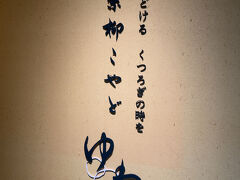 どける くつろぎの時を
柳こやど
ゆ